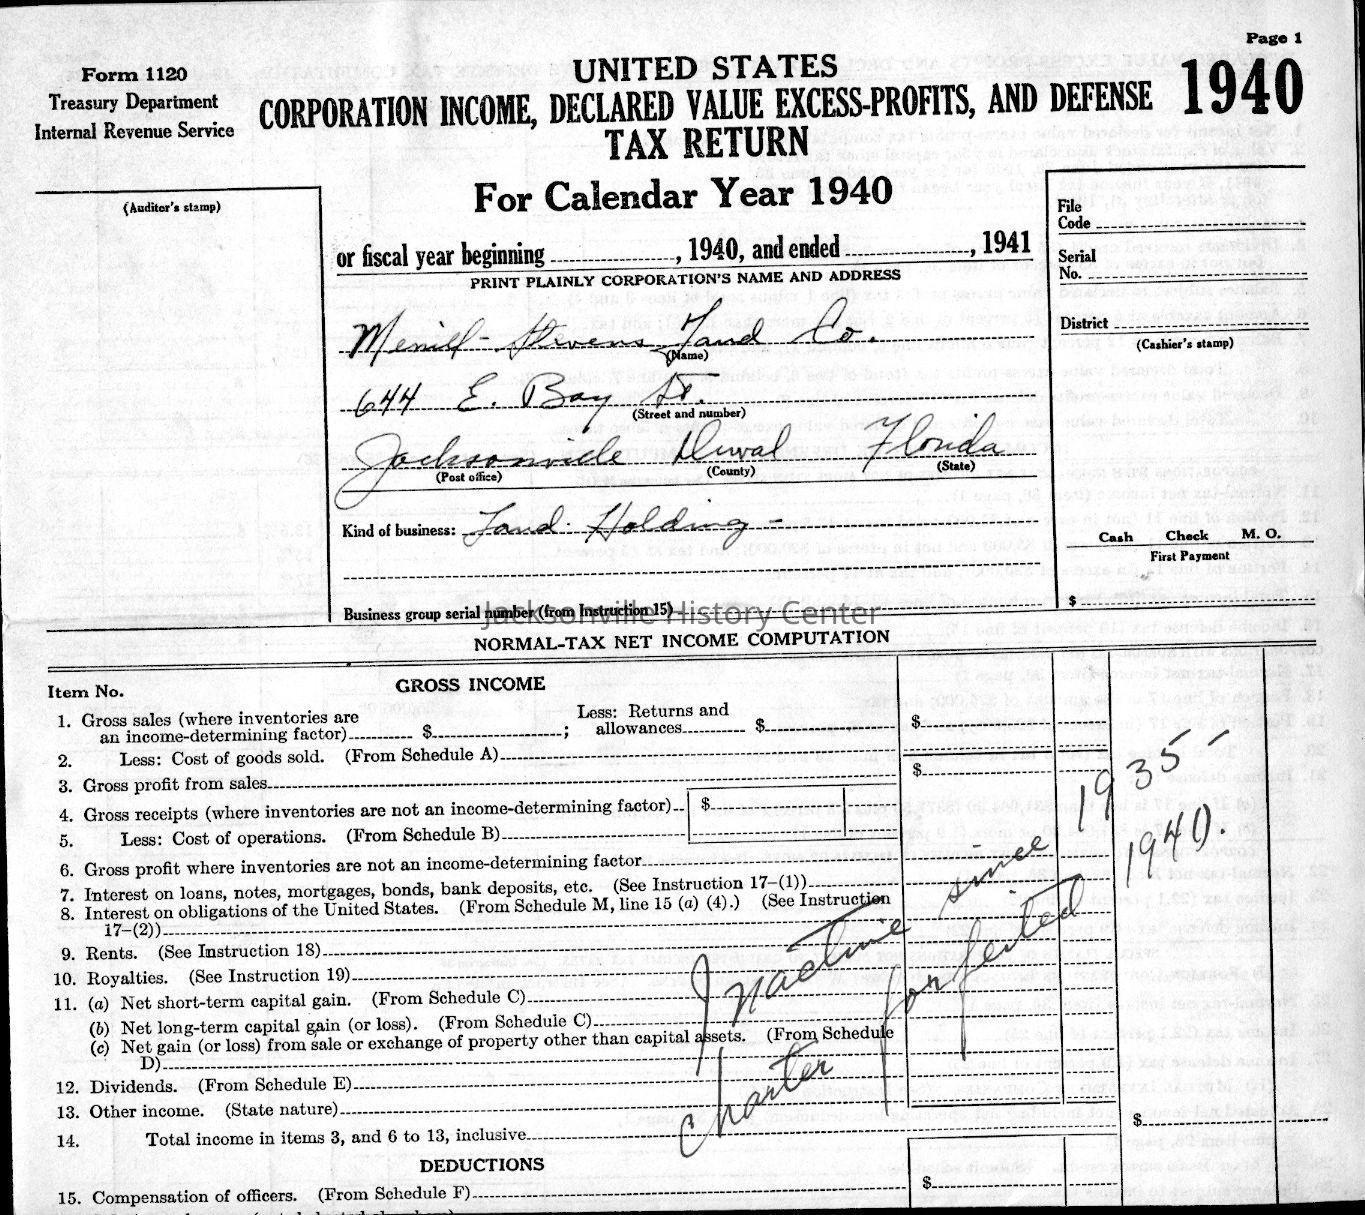 Page 1
Form 1120
Treasury Department
Internal Revenue Service
UNITED STATES
CORPORATION INCOME, DECLARED VALUE EXCESS-PROFITS, AND DEFENSE
TAX RETURN
1940
For Calendar Year 1940
or fiscal year beginning , 1940, and ended , 1941
PRINT PLAINLY CORPORATION'S NAME AND ADDRESS
(Auditor's stamp)
File
Code
Serial
No.
District
(Cashier's stamp)
Merrill-Stevens Land Co.
(Name)
644 E. Bay St.
(Street and number)
Jacksonville Duval Florida
(Post office) (County) (State)
Kind of business: Land Holding -
Cash Check M. O.
First Payment
$
Business group serial number (from Instruction 15)
Jacksonville History Center
NORMAL-TAX NET INCOME COMPUTATION
Item No.
GROSS INCOME
1. Gross sales (where inventories are
an income-determining factor) $ ; Less: Returns and
allowances $ $
2. Less: Cost of goods sold. (From Schedule A)
3. Gross profit from sales $
4. Gross receipts (where inventories are not an income-determining factor) $
5. Less: Cost of operations. (From Schedule B)
6. Gross profit where inventories are not an income-determining factor
7. Interest on loans, notes, mortgages, bonds, bank deposits, etc. (See Instruction 17-(1))
8. Interest on obligations of the United States. (From Schedule M, line 15 (a) (4).) (See Instruction
17-(2))
9. Rents. (See Instruction 18)
10. Royalties. (See Instruction 19)
11. (a) Net short-term capital gain. (From Schedule C)
(b) Net long-term capital gain (or loss). (From Schedule C)
(c) Net gain (or loss) from sale or exchange of property other than capital assets. (From Schedule
D)
12. Dividends. (From Schedule E)
13. Other income. (State nature)
14. Total income in items 3, and 6 to 13, inclusive $
Inactive since 1935
Charter forfeited 1940.
DEDUCTIONS
15. Compensation of officers. (From Schedule F) $